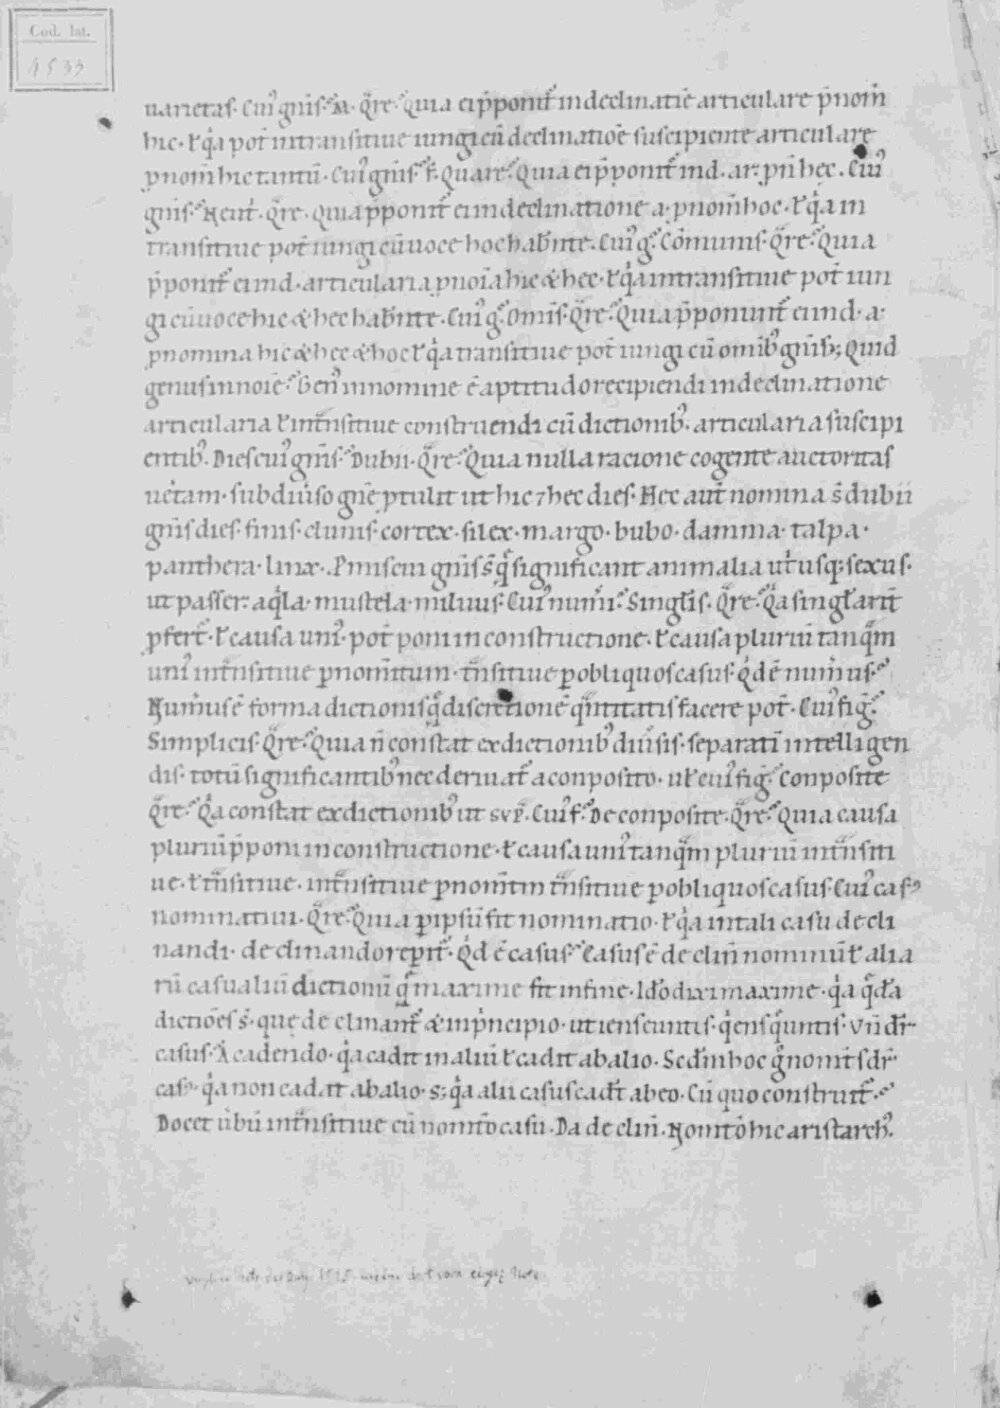 Cod. lat.
4533
uarietas. Cui᾽ gn̄is. M. Q̄re. Quia ei p̄ponit᷑ indeclinatiē articulare p̄nom̄
hic. ł q̇a pot̄ intransitiue iungi cū declinatiōe suscipiente articulare
pnom̄ hic tantū. Cui᾽ gn̄is. F. Quare. Quia ei p̄ponit᷑ ind. ar. pn̄ hec. Cui᾽
gn̄is. Neut̄. Q̄re. Quia p̄ponit᷑ ei in declinatione a. pnom̄ hoc. ł q̇a in
transitiue pot̄ iungi cū uoce hoc hab̄nte. Cui᾽ g. Cōmunis. Q̄re. Quia
p̄ponit᷑ ei ind. articularia pnoīa hic & hec. ł q̇a intransitiue pot̄ iun
gi cū uoce hic & hec hab̄nte. Cui᾽ g. Omīs. Q̄re. Quia p̄ponunt᷑ ei ind. a.
pnomina hic & hec & hoc ł q̇a transitiue pot̄ iungi cū omīb᾽ gn̄ib;. Quid
genus in noīe. Gen᾽ in nomine ē aptitudo recipiendi in declinatione
articularia ł int̄nsitiue construendi cū dictionib᾽. articularia suscipi
entib᾽. Dies cui᾽ gn̄is. Dubii. Q̄re. Quia nulla racione cogente auctoritas
uet̄am. sub diuiso gn̄e ptulit ut hic ⁊ hec dies. Hec aut̄ nomina s̄ dubii
gn̄is dies. finis. clunis. cortex. silex. margo. bubo. damma. talpa.
panthera. linx. Pmiscui gn̄is s̄ q̄ significant animalia ut̓usq; sexus.
ut passer. aq̇la. mustela. miluus. Cui᾽ num̄i. Singłis. Q̄re. Q̇a singłarit̄
pfert᷑. ł causa uni᾽. pot̄ poni in constructione. ł causa pluriū tanq̄m
uni᾽ int̄nsitiue p nom̄tiuum. t̄nsitiue p obliquos casus. Q̇d ē num̄us.
Num̄us ē forma dictionis q̄ discretionē q̄ntitatis facere pot̄. Cui᾽ fiḡ.
Simplicis. Q̄re. Quia n̄ constat ex dictionib᾽ diuīsis. separatī intelligen
dis. totū significantib᾽ nec deriuat᷑ a conposito. uł cui᾽ fiḡ. Conposite
Q̄re. Q̇a constat ex dictionib᾽ ut sup̄. Cui᾽ f. De conposite. Q̄re. Quia causa
pluriū p̄ poni in constructione. ł causa uni᾽ tanq̄m pluriū int̄nsiti
ue. ł t̄nsitiue. int̄nsitiue p nom̄tm t̄nsitiue p obliquos casus. Cui᾽ cas᾽
nominatiui. Q̄re. Quia p ipsū fit nominatio. ł q̇a in tali casu decli
nandi. declinando repit᷑. Q̇d ē casus. Casus ē declin̄ nominū ł alia
rū casualiū dictionū q̄ maxime fit in fine. Id̄o dixi maxime. q̇a q̄da
dictiōes s̄. que declinant᷑ & in p̄ncipio. ut iens euntis. q̇ens q̄untis. Vn̄ dr̄
casus. A cadendo. q̇a cadit in aliū ł cadit ab alio. Sed̄m hoc ḡ nomīt̄s dr̄
cas᾽. q̇a non cadat ab alio. s; q̇a alii casus cad̄t ab eo. Cū quo construit᷑.
Docet ūbū int̄nsitiue cū nomīto casu. Da declin̄. Nomītō hic aristarch᾽.